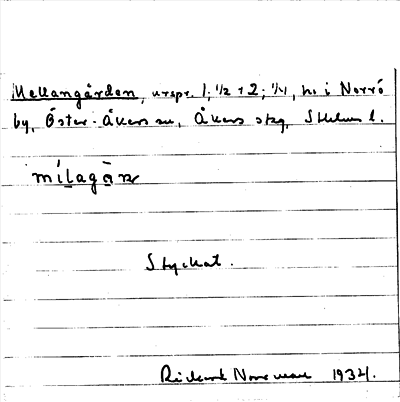 Mellangården, urspr. 1; 1/2 + 2; 1/4, hs i Norrö
by, Öster-Åkers sn, Åkers skg, Sthlms l.
mílagåɳ
Styckat.
Rickard Norrman 1934.